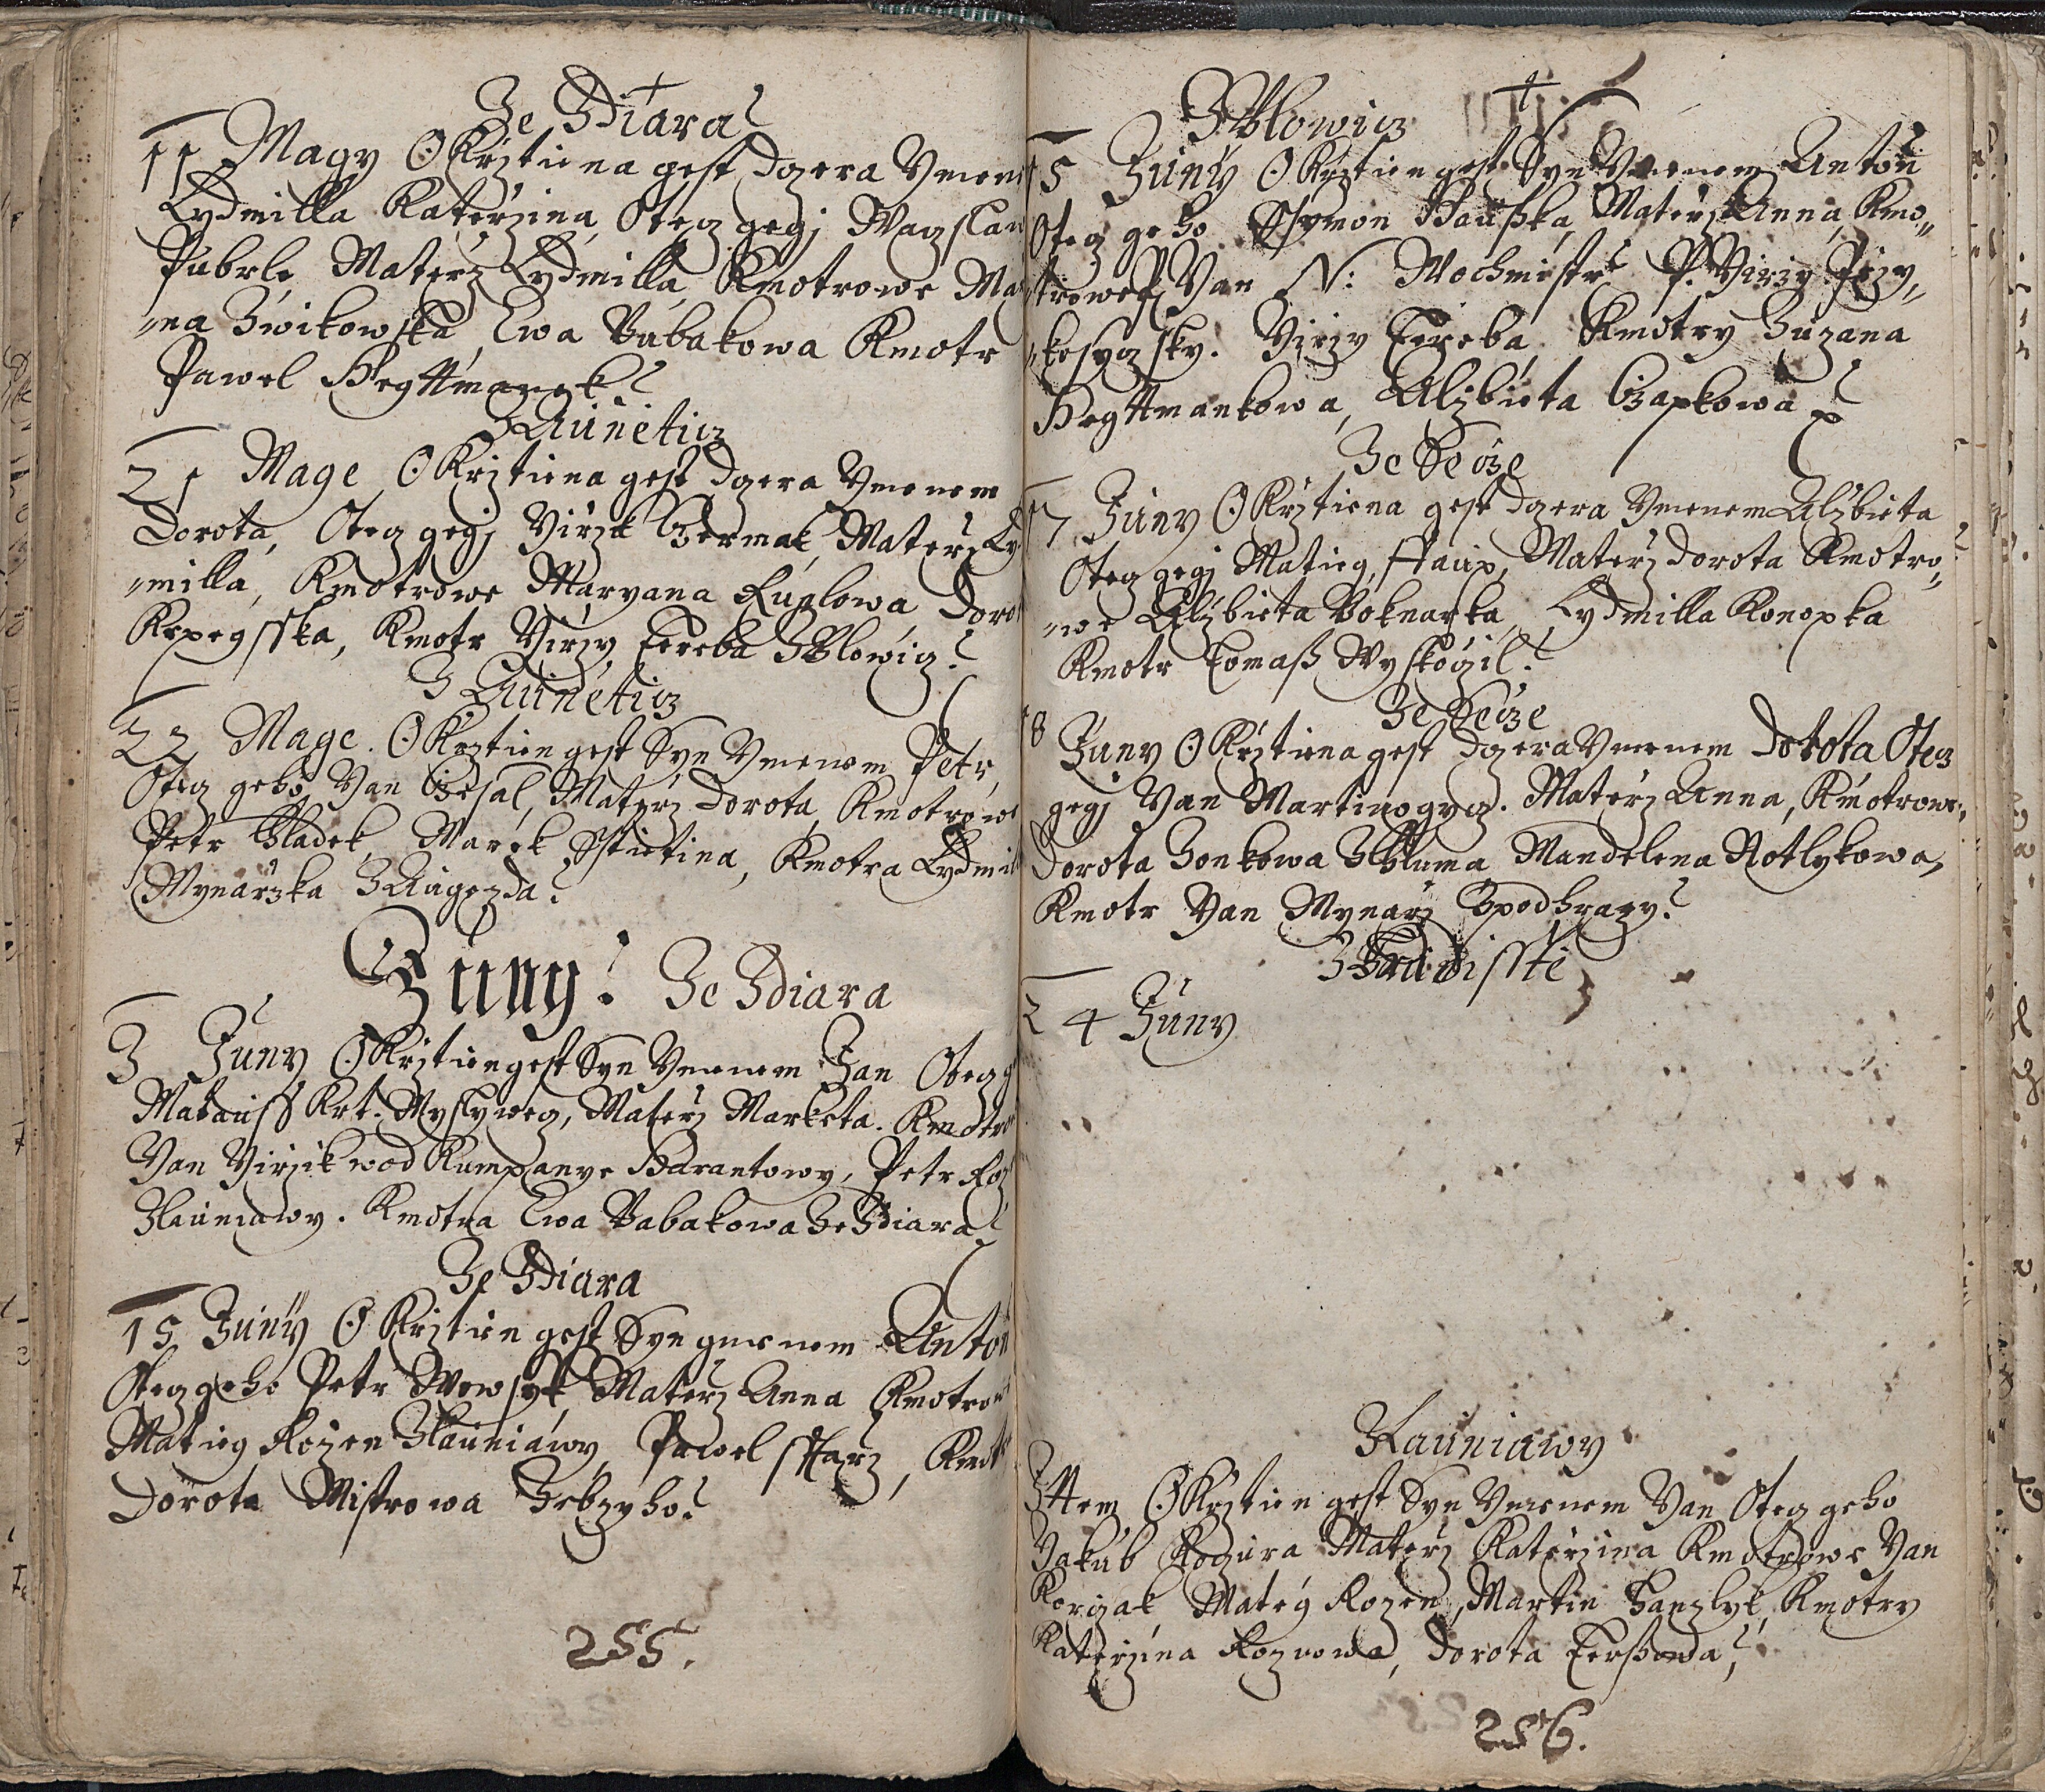 Ze Zdiara
11 Magy Okrztiena gest dczera Ymene
Lydmilla Katerzina, Otecz gegj Waczslaw
Pubrle Materz Lydmilla Kmotrowe Ma
na Zwikowska, Ewa Babakowa Kmotr
Pawel Hegttmanek
Z Auneticz
21 Mage Okrztiena gest dczera Ymenem
Dorota, Otecz gegj Yirzik Czermak, Materz Ly
milla, Kmotrowe Maryana Kuplowa Doro
Kepegsska, Kmotr Yirzy Fereba Zblowicz
Z Auneticz
22 Mage. Okrztien gest Syn Ymenem Petr,
Otecz geho Yan Czesal, Materz Dorota, Kmotrowe
Petr Hladek, Marek Sstietina, Kmotra Lydmil
Mynarzka Z Augezda
Juny Ze Zdiara
3 Juny Okrztien gest Syn Ymenem Jan Otecz g
Matauss Krt. Myslywecz, Materz Marketa. Kmotro
Yan Yirzik wod Kumpanye Harantowy, Petr Roz
Zlauniawy. Kmotra Ewa Babakowa Ze Zdiara
Ze Zdiara
15 Juny Okrztien gest Syn gmenem Anton
Otecz geho Petr Wowsyk Materz Anna Kmotrow
Matieg Rozen Zlauniawy Pawel Sstarz, Kmot
Dorota Mistrowa Zebzyho
255.
Zblowicz
15 Juny Okrztien gest Syn Ymenem Anton
Otecz geho Ssymon Hausska, Materz Anna, Kmo
trowe P. Yan N: Wochmistr P. Yirzy
Yirzy Fereba Kmotry Zuzana
Hegttmankowa, Alzbieta Czapkowa
Ze Secze
17 Juny Okrztiena gest dczera Ymenem Alzbieta
Otecz gegj Matieg, Materz Dorota Kmotro
we Alzbieta Boknarka, Lydmilla Konopka
Kmotr Tomass Wyskoczil
Ze Secze
18 Juny Okrztiena gest dczera Ymenem Dorota Otecz
gegj Yan Martinogycz. Materz Anna, Kmotrowe
Dorota Zonkowa Z Chluma Mandelena Rotlykowa,
Kmotr Yan Mynarz Zpodhrazy
Z Hradisstie
24 Juny
Zlauniawy
Ittem Okrztien gest Syn Ymenem Yan Otecz geho
Yakub Koczura Materz Katerzina Kmotrowe Yan
Korczak Mateg Rozen, Martin Hanzlyk, Kmotry
Katerzina Roznowa, Dorota Ferssowa
256.